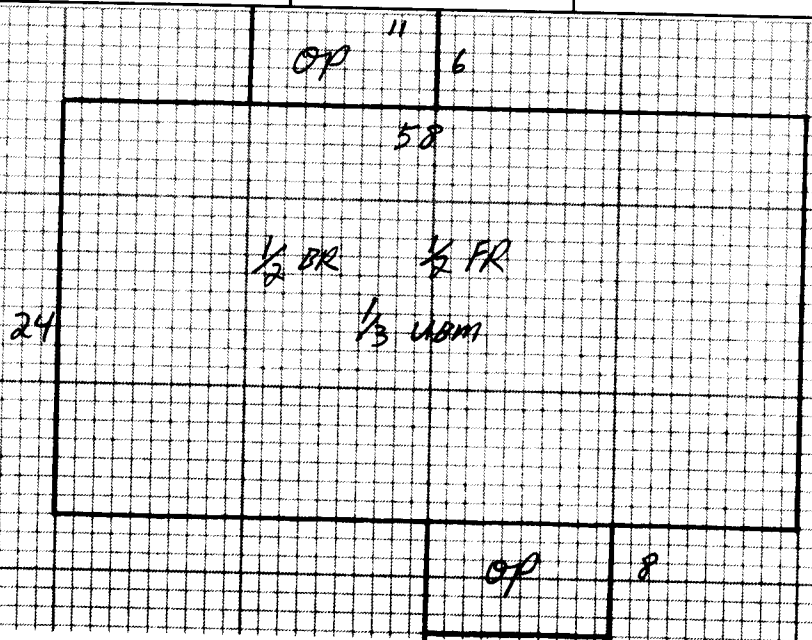 11
OP 6
58
1/2 BR 1/2 FR
24 1/3 UBM
OP 8